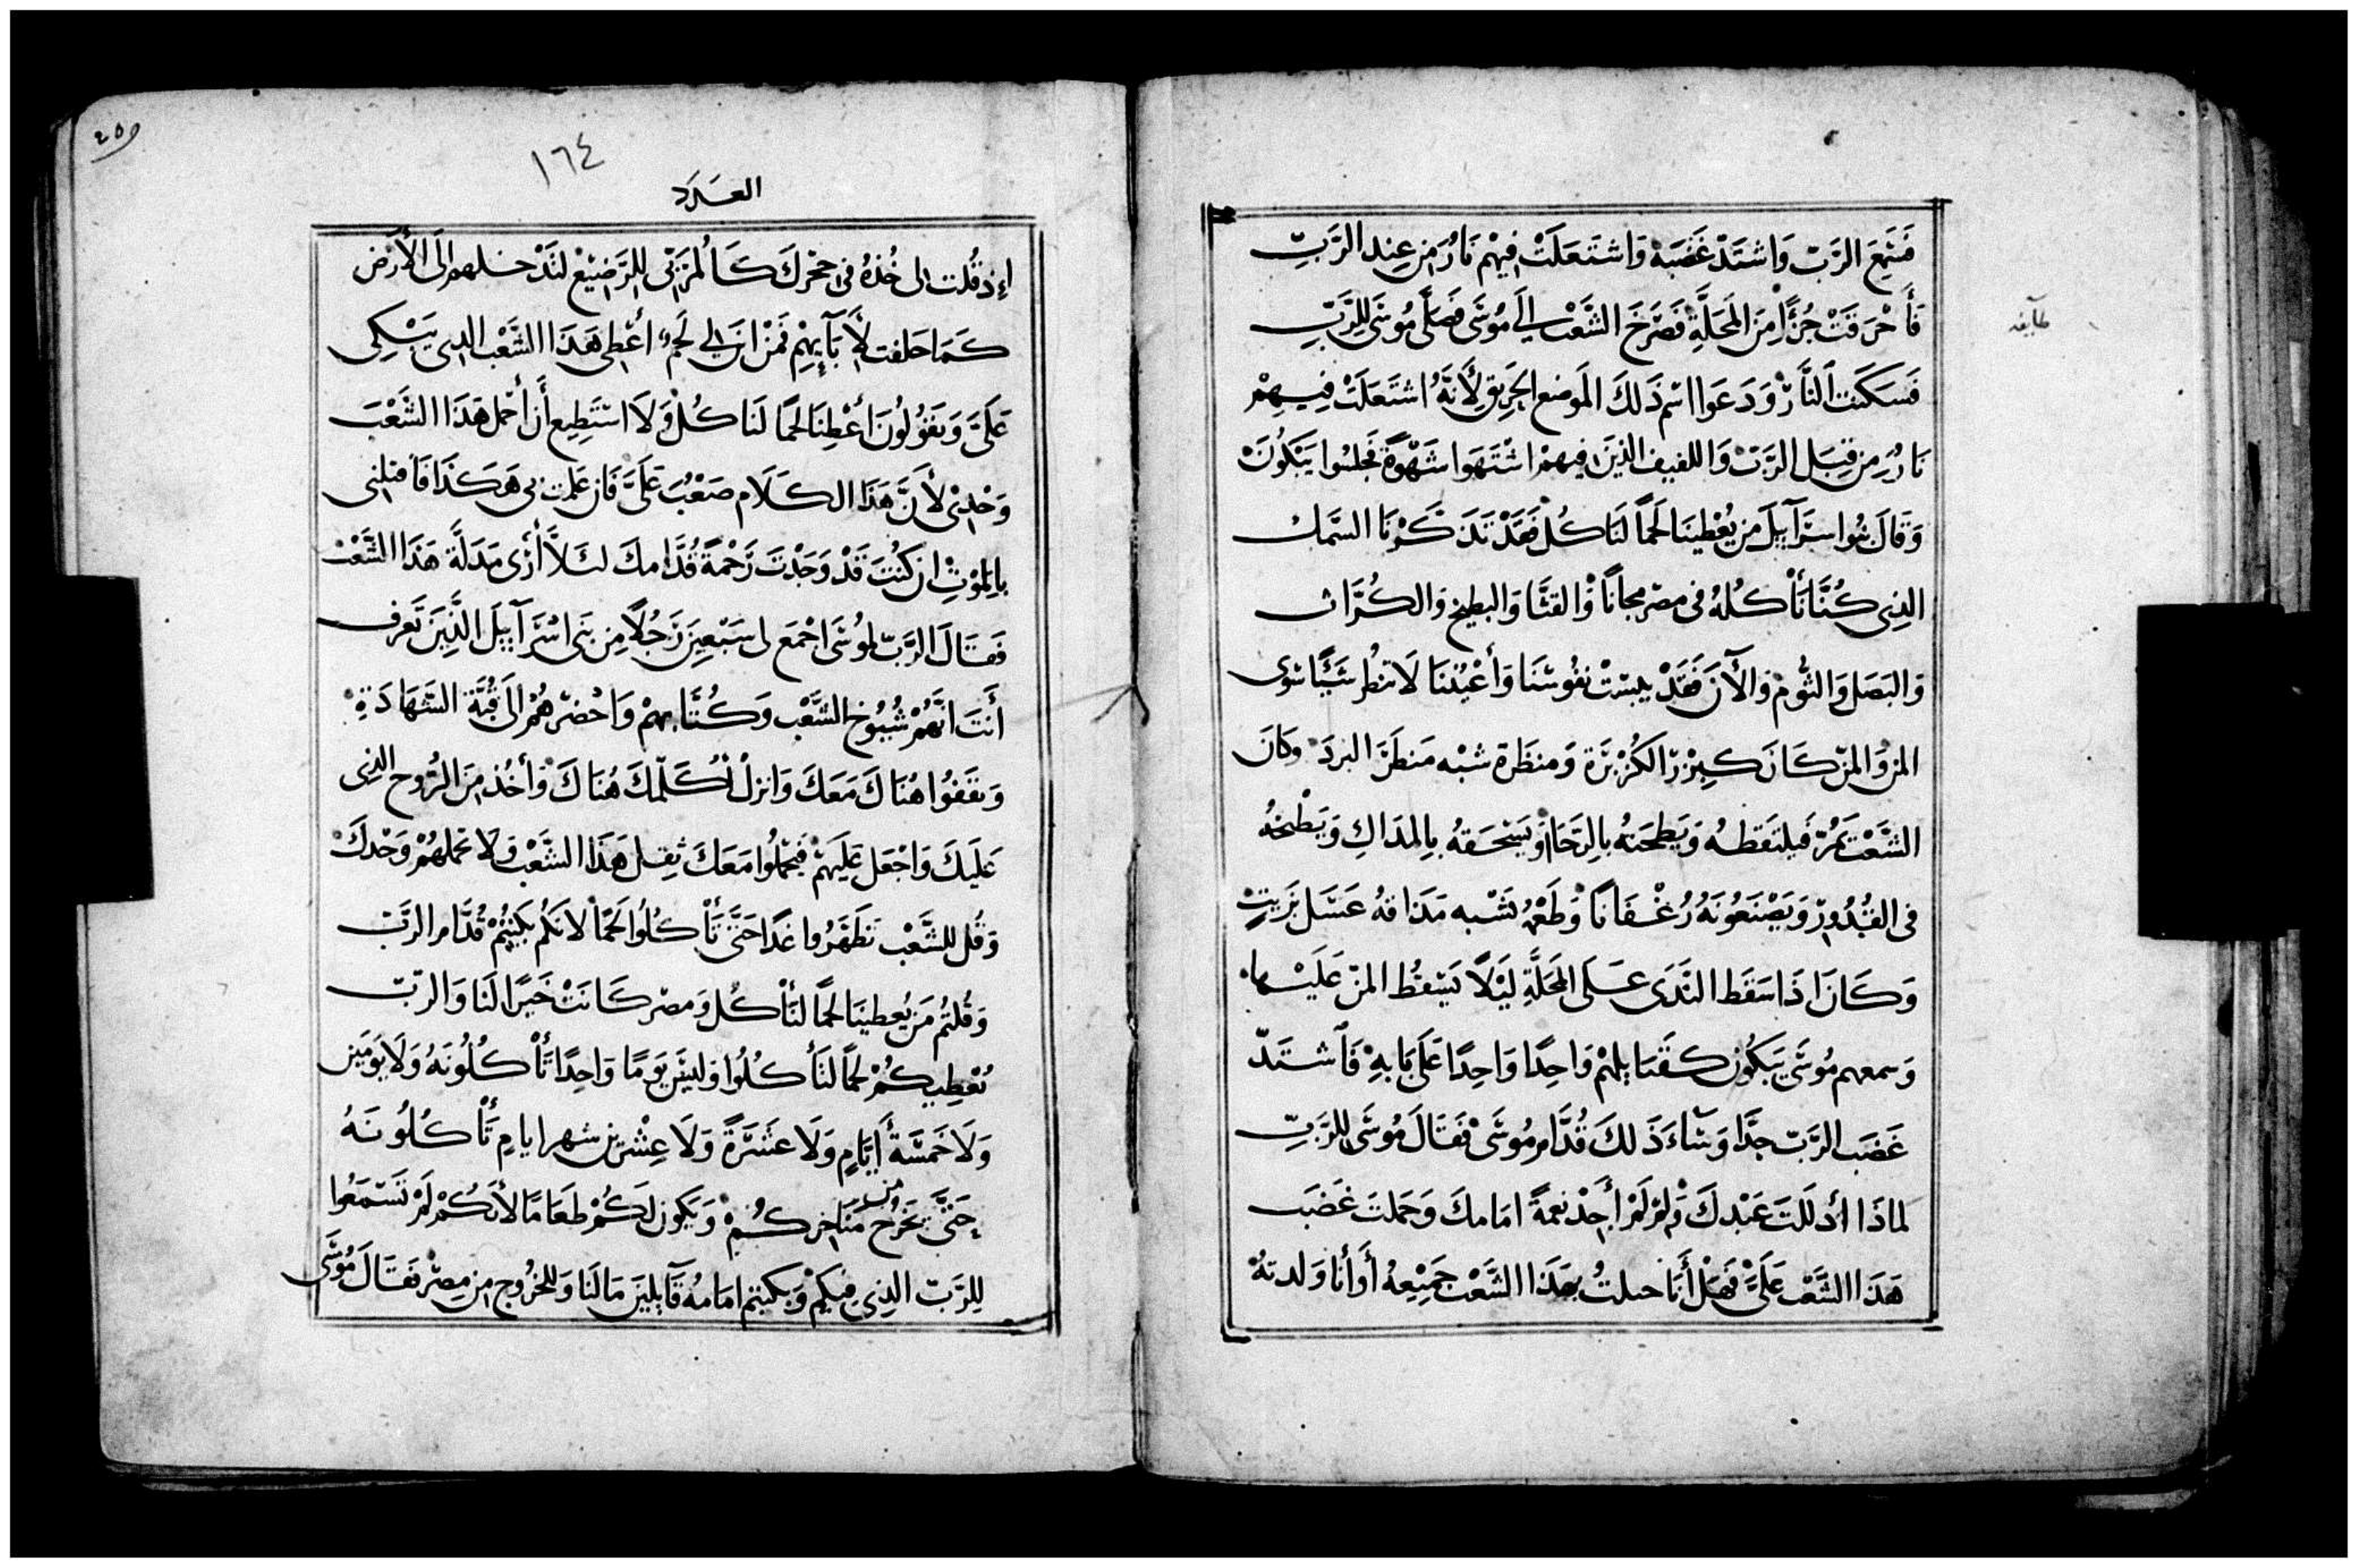 فَسَمِعَ الرَّبّ وَاشتَدّ غَضَبَهْ وَاشتَعَلَتْ فيهْم نَارُ مِن عِند الرَّبِّ
فَأَحْرَقَتْ جُزًا مِنَ المَحَلَّةِ فَصَرَخَ الشَّعْب إلَى مُوسَى فَصَلَّى مُوسَى لِلرَّبِّ
طايفه
فَسَكَنَت النَّارْ وَدَعَوا اسْم ذَلكَ المَوضع الحَرِيق لِأَنَّهُ اشتَعَلَتْ فِيهِمْ
نَارُ مِن قِبَل الرَّبّ وَاللفيف الذِينَ فيهمْ اشْتَهَوا شَهْوَةً فجَلسُوا يَبْكُونَ
وَقَالَ بنُوا اسرَآييلَ مَن يُعْطِينَا لَحمًا لنَا كُل فَقَدْ تَذَكَّرْنَا السَّمك
الذِى كُنَّا نَأْكُلهُ فى مصْر مجانًا وَالقثَّا وَالبطيخ وَالكُرَّاث
وَالبَصَل وَالثُّوم وَالآنَ فَقَدْ يبسَتْ نفُوسْنَا وَأَعْيُننَا لَا تنظُر شَيًّا سوى
المن وَالمنّ كَانَ كبِزْرّ الكُزْبَرَة وَمنظَرة شبْه مَنظَرَ البردَ وكَانَ
الشَّعْب يَمُرّ فَيلتَقطهُ وَيَطحَنهُ بالرَّحَا أَوْ يَسْحَقهُ بِالمدَاكِ وَيَطْبخهُ
فى القُدُورّ وَيَصْنَعُونَهُ رُغْفَانًا وَطَعْمهُ يشْبه مَذاقهُ عَسَل بزَيتٍ
وَكَانَ اذَا سَقَط النَدَى عَلى المَحَلَّةِ لَيْلًا يَسْقُط المنّ عَلَيْها
وَسمعهم مُوسَى يَبكُون كقَبَايلهْم وَاحِدًا وَاحِدًا عَلَى بَابهِ فَاشتَدّ
غَضَب الرَّبّ جدًّا وَسَآءَ ذَلكَ قُدَّام مُوسَى فَقَالَ مُوسَى للرَّبِّ
لماذَا أذللتَ عَبْدكَ وَلِمْ لَمْ أَجِدْ نعمَةً امَامكَ وَحَملتَ غَضَبَ
هَذَا الشَّعْب عَلَىَّ فَهَلْ أَنَا حبلتُ بهَذَا الشَّعْب جَمِيْعهُ أَوأنا وَلدتهُ
٢٥٩
١٦٤
العدد
إذ قُلت لى خُذهُ فى حجْركَ كَالمُرَبّى للرَّضِيعْ لتَدْخلهم إلَى الأَرْض
كَمَا حَلفت لِأَبَآيِهِمْ فَمنْ ايْنَ لى لَحْمٌ أُعْطِى هَذَا الشَّعْب الذِى يَبْكِى
عَلَىَّ وَيَقُولُونَ أَعْطِنَا لحمًا لنَاكُلْ وَلَا اسْتَطِيع أَن أَحْمل هَذَا الشَّعْبَ
وَحْدِى لأَنَّ هَذَا الكَلَام صَعْبُ عَلَىَّ فَان عَملت بى هَكَذَا فَاقتلنى
بِالمَوْتِ ان كُنْتَ قَدْ وَجَدْتَ رَحْمَةً قُدَّامكَ لئَلَّا أَرَى مَذَلَّة هَذَا الشَّعْب
فَقَالَ الرَّبّ لمُوسَى اجْمَع لى سَبْعِينَ رَجُلًا مِن بَنى اسْرَآييلَ الَّذِينَ تَعرف
أَنتَ انَّهُمْ شُيُوخ الشَّعْب وَكُتَّابهمْ وَاحْضرْهُمْ إلَى قُبَّة الشَّهَادَةِ
وَيقَفُوا هُنَاكَ مَعَكَ وَانزلْ أُكَلّمكَ هُنَاكَ وَأخُذ مِنَ الرُّوح الذِى
عَلَيكَ وَاجْعَل عَلَيهمْ فَيحْملُوا مَعَكَ ثِقِل هَذَا الشَّعْب وَلَا تحْملهُمْ وَحْدكَ
وَقُل للشَّعْب تَطَهَّرُوا غَدًا حَتَّى تَأْكُلُوا لَحمًا لَانكُم بَكَيتُمْ قُدَّام الرَّبّ
وَقُلتُم مَن يُعطينَا لحمًا لنَأْكُل وَمصْر كَانَتْ خَيرًا لَنا وَالرّبّ
يُعْطِيكُمْ لحمًا لتَأكُلُوا وَليسَ يَومًا وَاحِدًا تَأْكُلُونَهُ وَلَا يَومَين
وَلَا خَمسَةَ أَيَّامٍ وَلَا عَشَرَةً وَلَا عِشْرِين شهر ايامٍ تَأْكُلُونَهُ
حَتَّى يَخرُج من مَنَاخركُمْ وَيَكُون لَكُمْ طَعَامًا لأَنكُمْ لَمْ تَسْتَمعُوا
لِلرَّبّ الذِى فِيكمْ وَبكيتم امَامهُ قَآيلينَ مَا لَنا وَللخرُوج مِن مِصْر فَقَالَ مُوسَى